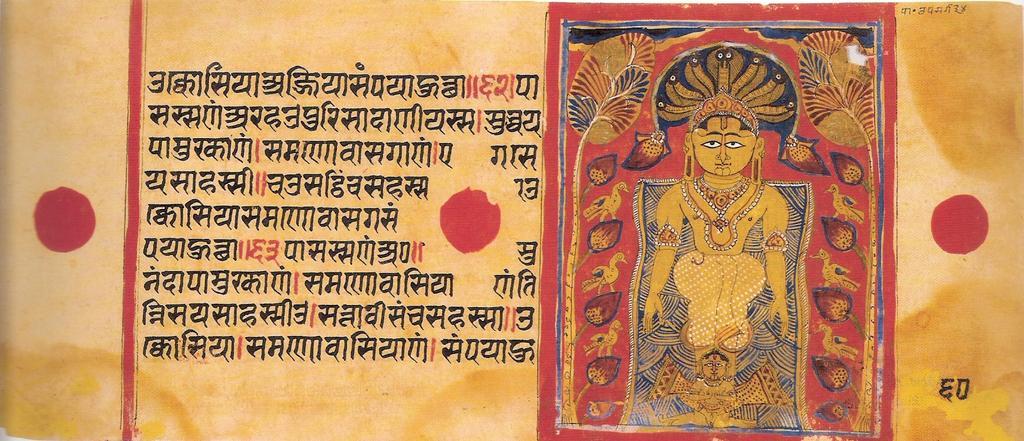 उक्कोसियाअज्जियासंपयाहुत्था॥६२।पा
सस्सणंअरहउपुरिसादाणीयस्स।सुव्वय
पामुरकाणं।समणोवासगाणं।ए गास
यसाहस्सी॥चउसट्ठिंचसहस्स उ
क्कोसियासमणोवासगसं
पयाहुत्था॥६३पासस्सणंअ०॥ सु
नंदापामुरकाणं।समणोवासिया णंति
न्निसयसाहस्सीउ।सत्तावीसंचसहस्सा॥उ
क्कोसिया।समणोवासियाणं।संपयाहु
६०